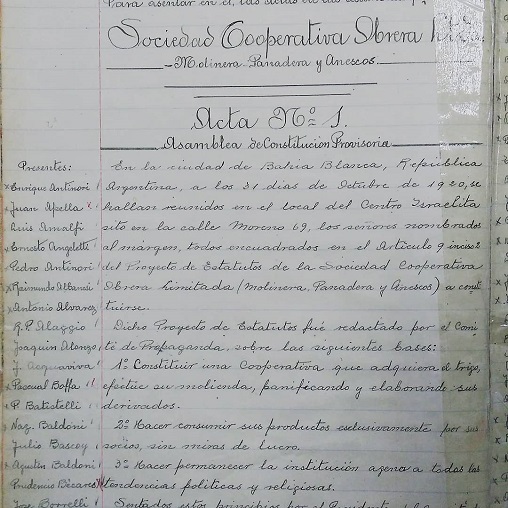 Para asentar en él, las actas de las
Sociedad Cooperativa Obrera
-Molinera Panadera y Anexos.-
Acta Nº 1.
Asamblea de Constitución Provisoria
Presentes:
x Enrique Antinori
x Juan Apella
Luis Amalfi
x Ernesto Angeletti
x Pedro Antinori
x Raimundo Albanis
x Antonio Alvarez
R.P. Alaggio
Joaquin Alonzo
J. Acquaviva
x Pascual Boffa
x P. Batistelli
x Naz. Baldoni
Julio Bascoy
x Agustin Baldoni
Prudencio Bécares
José Borrelli
En la ciudad de Bahia Blanca, República
Argentina, a los 31 dias de Octubre de 1920, se
hallan reunidos en el local del Centro Israelita
sito en la calle Moreno 69, los señores nombrados
al márgen, todos encuadrados en el Articulo 9 inciso 2
del Proyecto de Estatutos de la Sociedad Cooperativa
Obrera Limitada (Molinera, Panadera y Anexos) a consti
tuirse.
Dicho Proyecto de Estatutos fué redactado por el Comi
té de Propaganda, sobre las siguientes bases:
1º Constituir una Cooperativa que adquiera el trigo,
efectúe su molienda, panificando y elaborando sus
derivados.
2º Hacer consumir sus productos esclusivamente por sus
socios, sin miras de lucro.
3º Hacer permanecer la institución agena a todas las
tendencias politicas y religiosas.
Sentados estos principios por el Presidente del